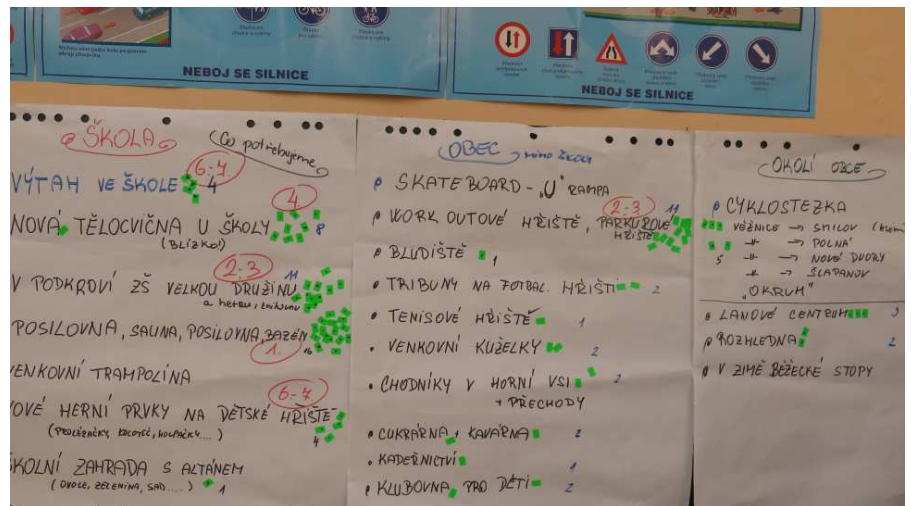 NEBOJ SE SILNICE
NEBOJ SE SILNICE
ŠKOLA
Co potřebujeme
6.-7
VÝTAH VE ŠKOLE 4
4
NOVÁ TĚLOCVIČNA U ŠKOLY 8
(BLÍZKO!)
2-3 11
V PODKROVÍ ZŠ VELKOU DRUŽINU
a hernu, knihovnu
POSILOVNA, SAUNA, POSILOVNA, BAZÉN
1. 16
VENKOVNÍ TRAMPOLÍNA
6-7
OVÉ HERNÍ PRVKY NA DĚTSKÉ HŘIŠTĚ
(PROLÉZAČKY, KOLOTOČ, HOUPAČKY....) 4
ŠKOLNÍ ZAHRADA S ALTÁNEM
(OVOCE, ZELENINA, SAD.....) 1
OBEC mimo školu
SKATEBOARD - „U" RAMPA
2-3 11
WORK OUTOVÉ HŘIŠTĚ, PARKUROVÉ
HŘIŠTĚ
BLUDIŠTĚ 1
TRIBUNY NA FOTBAL. HŘIŠTI 2
TENISOVÉ HŘIŠTĚ 1
VENKOVNÍ KUŽELKY 2
CHODNÍKY V HORNÍ VSI 2
+ PŘECHODY
CUKRÁRNA + KAVÁRNA 2
KADEŘNICTVÍ 1
KLUBOVNA PRO DĚTI 2
OKOLÍ OBCE
CYKLOSTEZKA
VĚŽNICE → SMILOV
-"- → POLNÁ
5 -"- → NOVÉ DVORY
-"- → ŠLAPANOV
„OKRUH"
LANOVÉ CENTRUM 3
ROZHLEDNA 2
V ZIMĚ BĚŽECKÉ STOPY